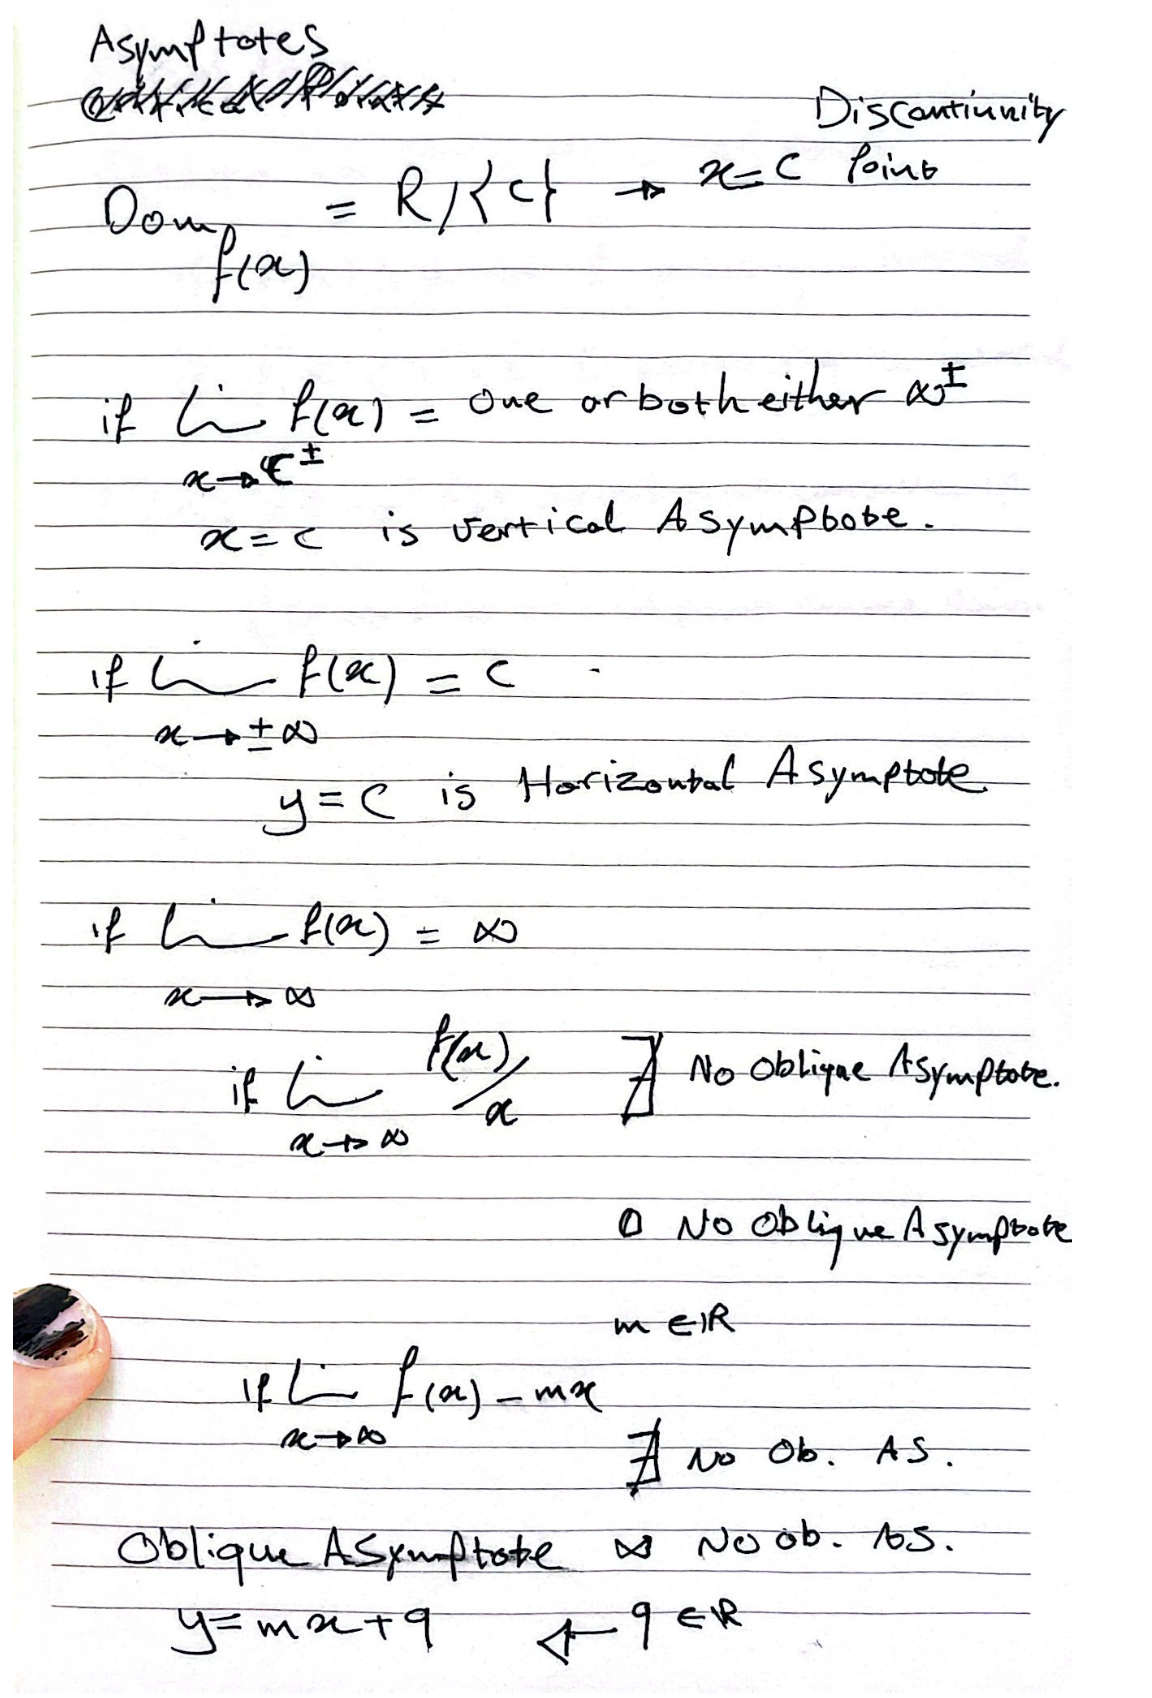 Asymptotes
Discontiunity
Dom f(x) = R/{c} → x=c Point
if lim f(x) = one or both either ∞±
x→c±
x=c is vertical Asymptote.
if lim f(x) = c
x→±∞
y=c is Horizontal Asymptote
if lim f(x) = ∞
x→∞
if lim f(x)/x ∄ No Oblique Asymptote.
x→∞
0 No Oblique Asymptote
m ∈ℝ
if lim f(x) - mx
x→∞
∄ No Ob. AS.
Oblique Asymptote ∞ No ob. AS.
y=mx+q ← q ∈ℝ